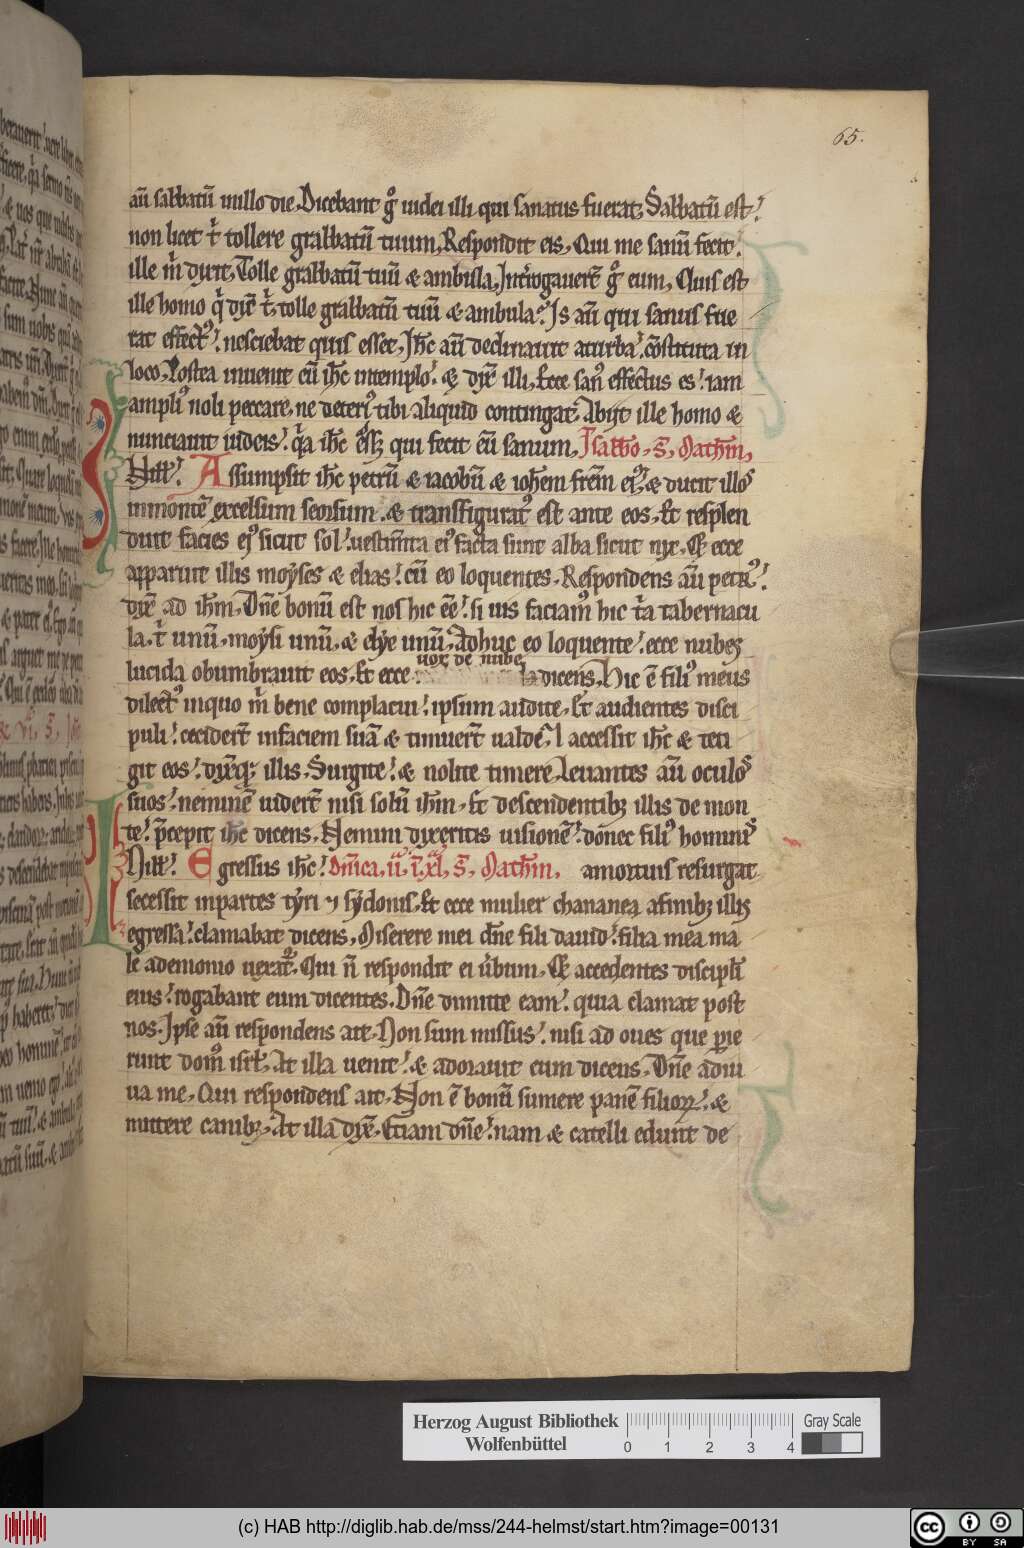 65.
aū sabbatū in illo die. Dicebant gͦ iudei illi qui sanatus fuerat; Sabbatū est.
non licet tͥ tollere grabbatū tuum. Respondit eis. Qui me sanū fecit.
ille m̄ dixit. Tolle grabbatū tuū & ambula. Int̄rogauer̄t gͦ eum. Quis est
ille homo qͥ dix̄ tͥ. tolle grabbatū tuū & ambula? Is aū qui sanus fue
rat effectꝰ. nesciebat quis esset. Ih̄c aū declinauit aturba. cōstituta in
loco. Postea inuenit eū ih̄c intemplo. & dix̄ illi. Ecce sanꝰ effectus es. iam
ampliꝰ noli peccare. ne deteriꝰ tibi aliquid contingat. Abijt ille homo &
nunciauit iudeis. qͣa ih̄c eēt qui fecit eū sanum. In sabbo. s. Mathm̄.
In illᵒ. Assumpsit ih̄c petrū & iacobū & ioh̄em fr̄em eiꝰ. & ducit illos
inmontē excelsum seorsum. & transfiguratꝰ est ante eos. Et resplen
duit facies eiꝰ sicut sol. uestim̄ta eiꝰ facta sunt alba sicut nix. Et ecce
apparuit illis moyses & elias. cū eo loquentes. Respondens aū petrꝰ.
dix̄ ad ih̄m. Dn̄e bonū est nos hic eē. si uis faciamꝰ hic tͥa tabernacu
la. tͥ unū. moysi unū. & elye unū. Adhuc eo loquente. ecce nubes
lucida obumbrauit eos. Et ecce uox de nube dicens. Hic ē filiꝰ meus
dilectꝰ inquo mͥ bene complacui. ipsum audite. Et audientes disci
puli. cecider̄t infaciem suā & timuer̄t ualde. Et accessit ih̄c & teti
git eos. dix̄qꝫ illis. Surgite. & nolite timere. Leuantes aū oculos
suos. neminē uider̄t nisi solū ih̄m. Et descendentibꝫ illis de mon
te. p̄cepit ih̄c dicens. Nemini dixeritis uisionē. donec filiꝰ hominis
In illᵒ. Egressus ih̄c. dn̄ica. ii. i. xl. s. Mathm̄. amortuis resurgat
secessit inpartes tyri ⁊ sydonis. Et ecce mulier chananea afinibꝫ illis
egressa. clamabat dicens. Miserere mei dn̄e fili dauid. filia mea ma
le ademonio uexatᷣ. Qui n̄ respondit ei ūbum. Et accedentes discipli
eius. rogabant eum dicentes. Dn̄e dimitte eam. quia clamat post
nos. Ipse aū respondens ait. Non sum missus. nisi ad oues que ꝑie
runt domꝰ isrl̄. At illa uenit. & adorauit eum dicens. Dn̄e adiu
ua me. Qui respondens ait. Non ē bonū sumere panē filioꝝ. &
mittere canibꝫ. At illa dix̄. Etiam dn̄e. nam & catelli edunt de
Herzog August Bibliothek
Wolfenbüttel
0 1 2 3 4
Gray Scale
(c) HAB http://diglib.hab.de/mss/244-helmst/start.htm?image=00131
cc BY SA